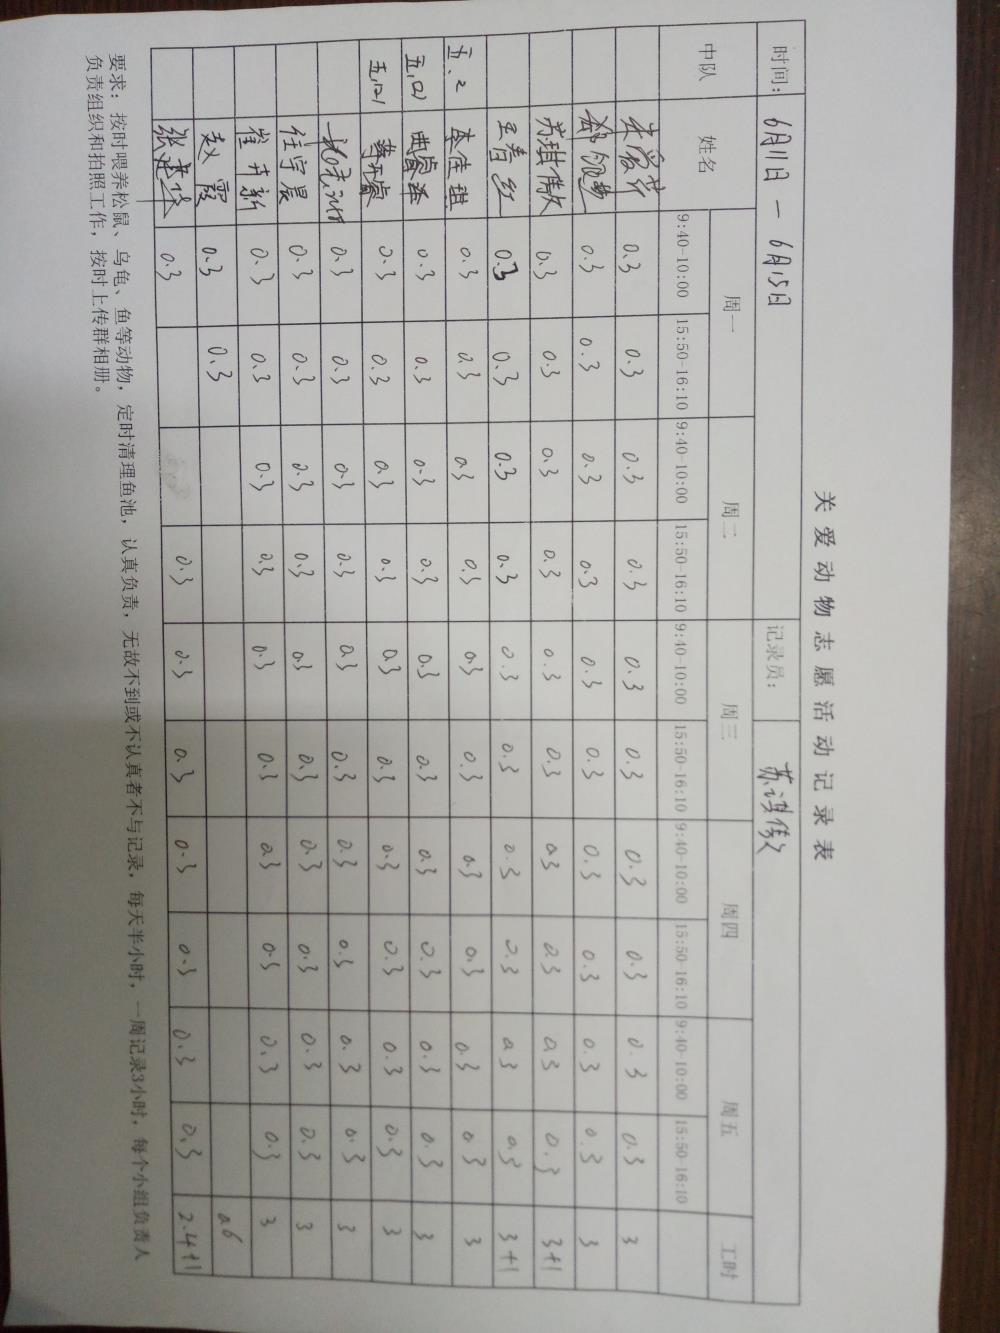 关爱动物志愿活动记录表
时间： 6月11日 — 6月15日 记录员： 苏琪伟
中队 姓名 周一 周二 周三 周四 周五 工时
9:40-10:00 15:50-16:10 9:40-10:00 15:50-16:10 9:40-10:00 15:50-16:10 9:40-10:00 15:50-16:10 9:40-10:00 15:50-16:10
0.3 0.3 0.3 0.3 0.3 0.3 0.3 0.3 0.3 0.3 3
0.3 0.3 0.3 0.3 0.3 0.3 0.3 0.3 0.3 0.3 3
苏琪伟 0.3 0.3 0.3 0.3 0.3 0.3 0.3 0.3 0.3 0.3 3+1
王春红 0.3 0.3 0.3 0.3 0.3 0.3 0.3 0.3 0.3 0.3 3+1
五、2 李佳琪 0.3 0.3 0.3 0.3 0.3 0.3 0.3 0.3 0.3 0.3 3
五,(2) 0.3 0.3 0.3 0.3 0.3 0.3 0.3 0.3 0.3 0.3 3
五,(2) 0.3 0.3 0.3 0.3 0.3 0.3 0.3 0.3 0.3 0.3 3
0.3 0.3 0.3 0.3 0.3 0.3 0.3 0.3 0.3 0.3 3
任宇晨 0.3 0.3 0.3 0.3 0.3 0.3 0.3 0.3 0.3 0.3 3
崔井新 0.3 0.3 0.3 0.3 0.3 0.3 0.3 0.3 0.3 0.3 3
赵霞 0.3 0.3 0.6
张建华 0.3 0.3 0.3 0.3 0.3 0.3 0.3 0.3 2.4+1
要求：按时喂养松鼠、乌龟、鱼等动物，定时清理鱼池，认真负责，无故不到或不认真者不与记录，每天半小时，一周记录3小时，每个小组负责人
负责组织和拍照工作，按时上传群相册。